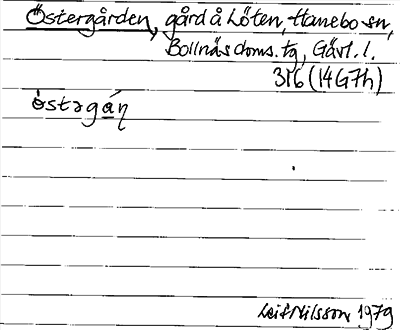 Östergården, gård å Löten, Hanebo sn,
Bollnäs doms. tg, Gävl. l.
316 (14G7h)
östəgán
Leif Nilsson 1979